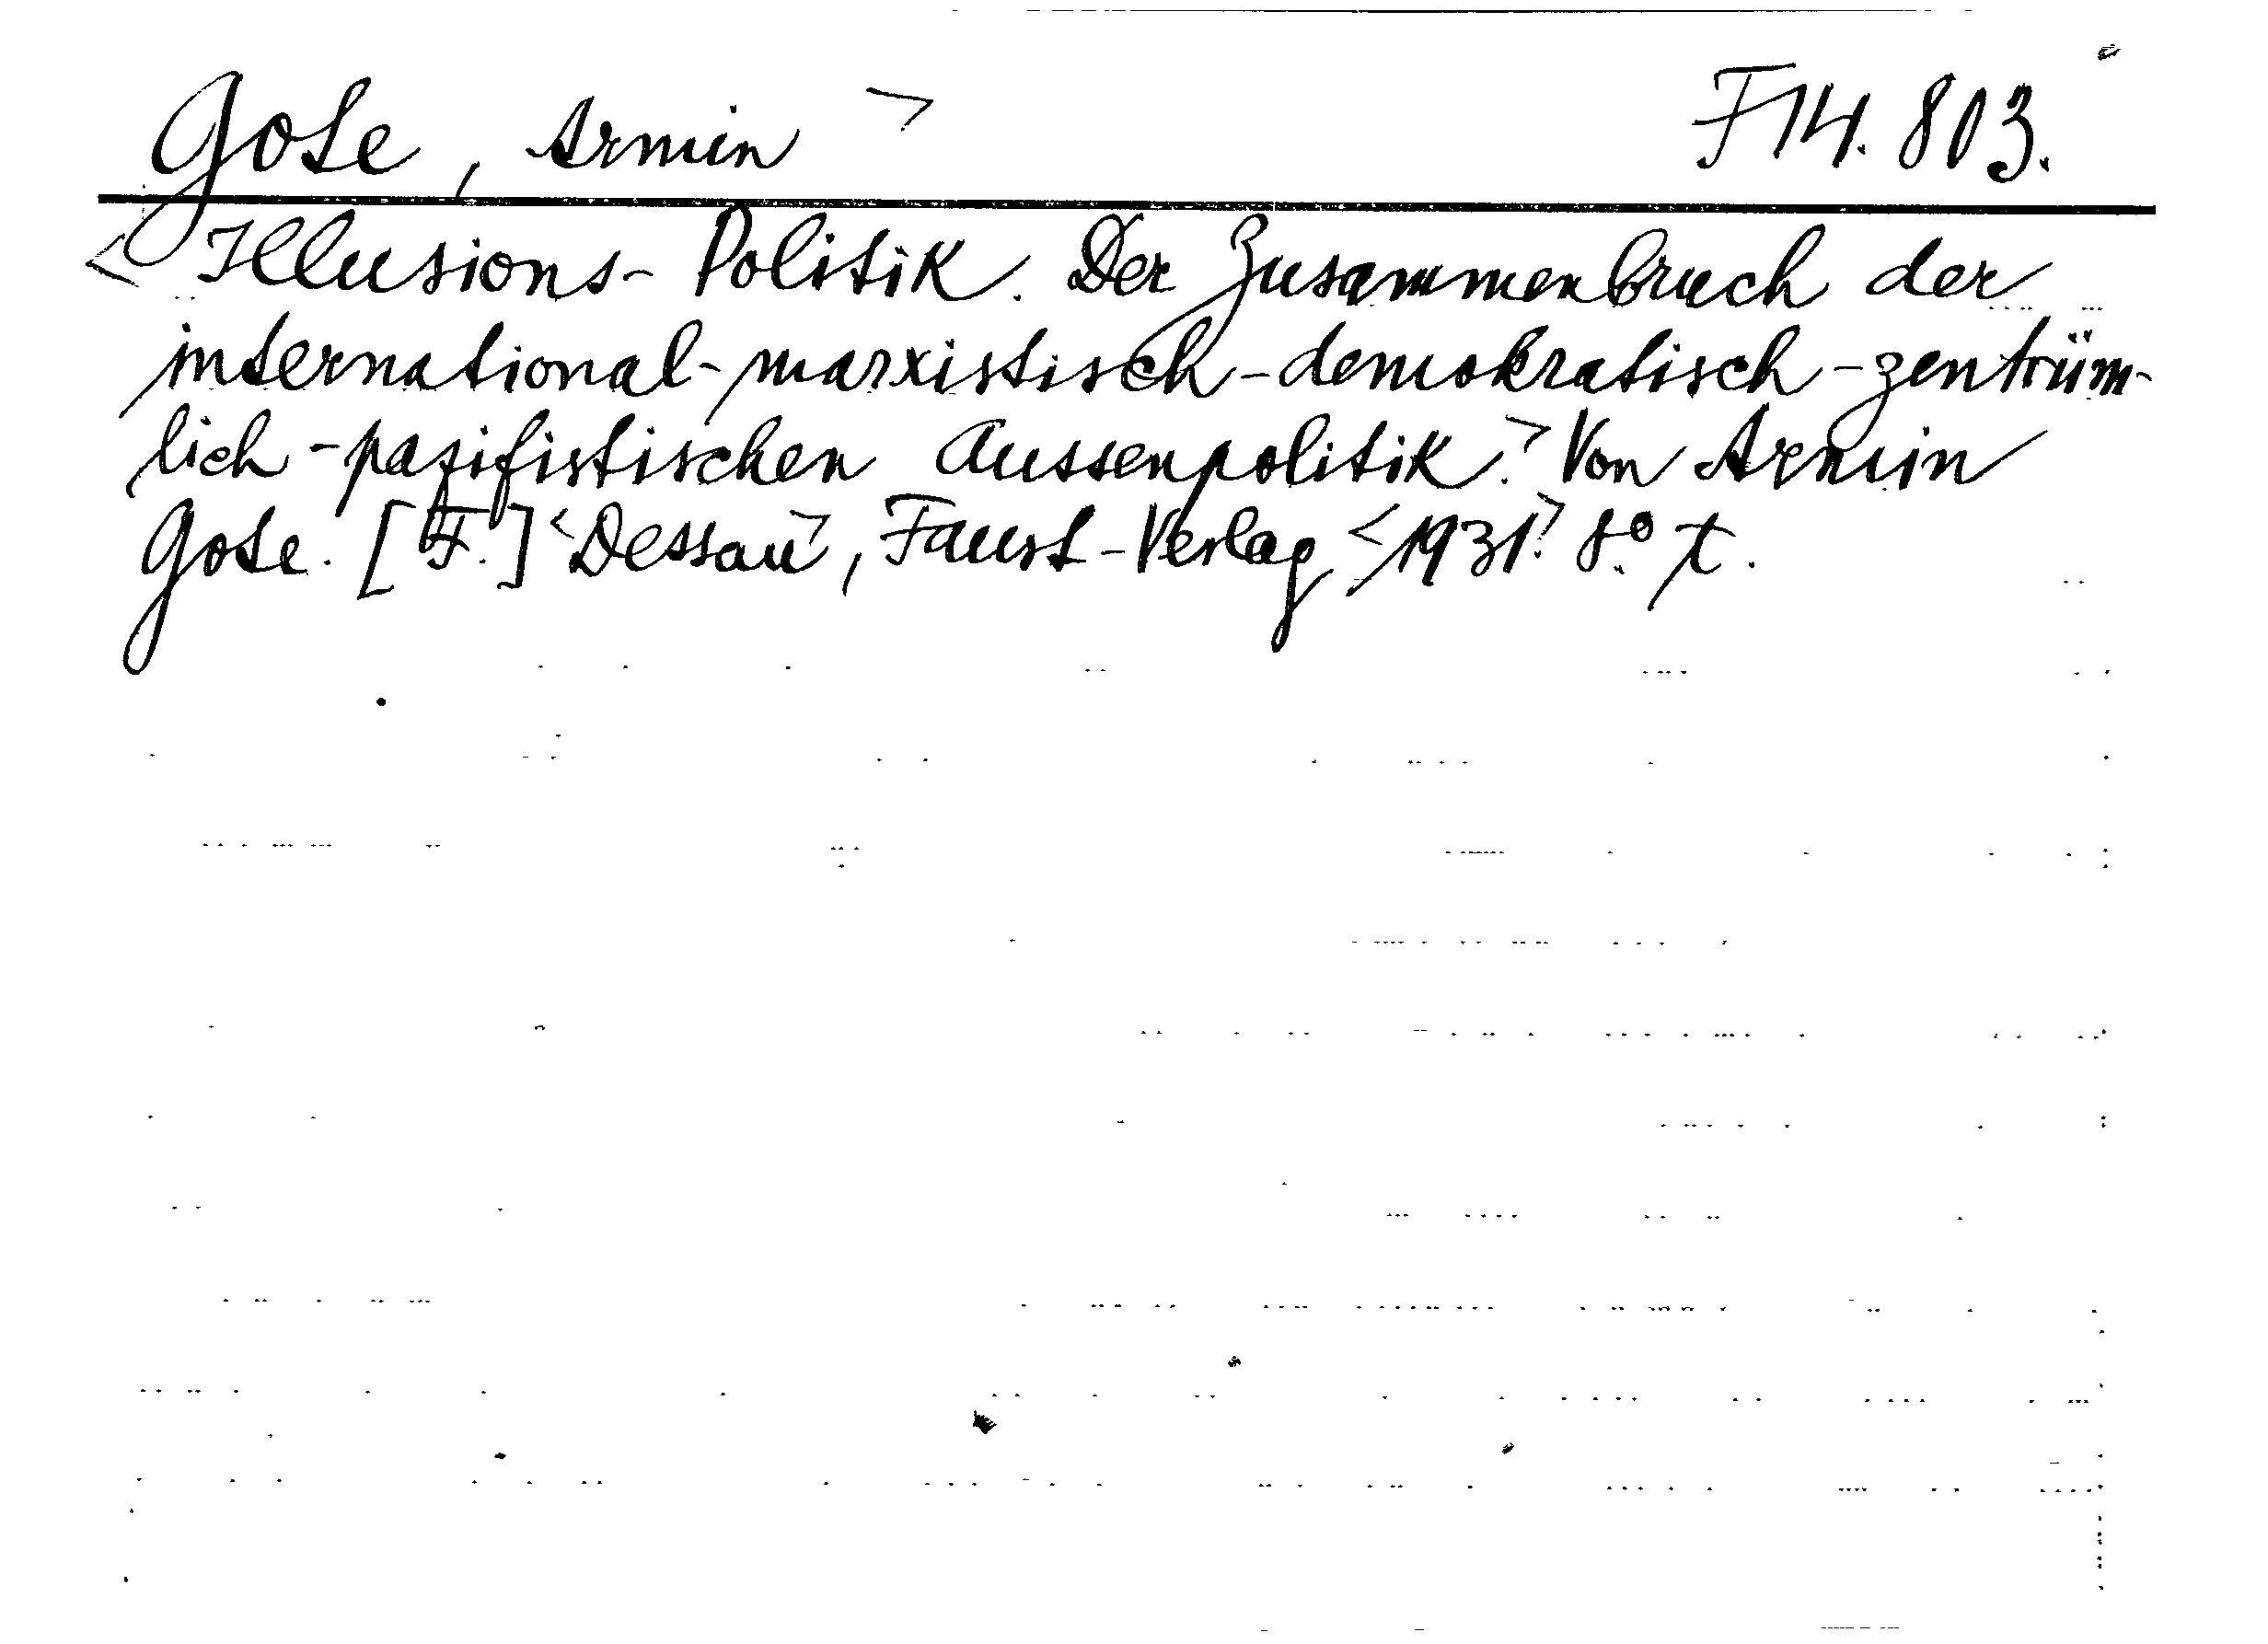 Gose, Armin > F 14.803.
< Illusions-Politik. Der Zusammenbruch der
international-marxistisch-demokratisch-zentrüm-
lich-pazifistischen Aussenpolitik.> Von Armin
Gose. [F.] <Dessau>, Faust-Verlag, <1931>. 8° t.